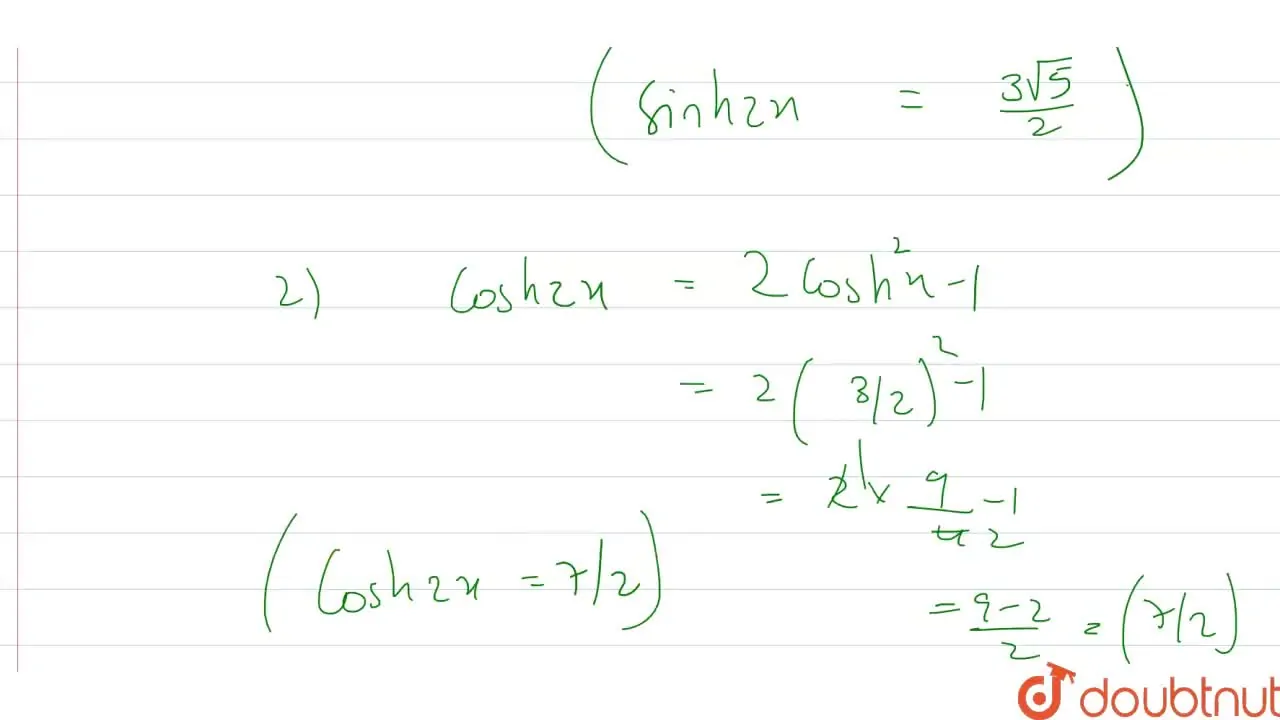 (sinh2x = 3√5/2)
2) Cosh2x = 2Cosh²x-1
= 2(3/2)²-1
= 2 1 × 9/4 2 -1
(Cosh2x = 7/2)
= 9-2/2 = (7/2)
doubtnut